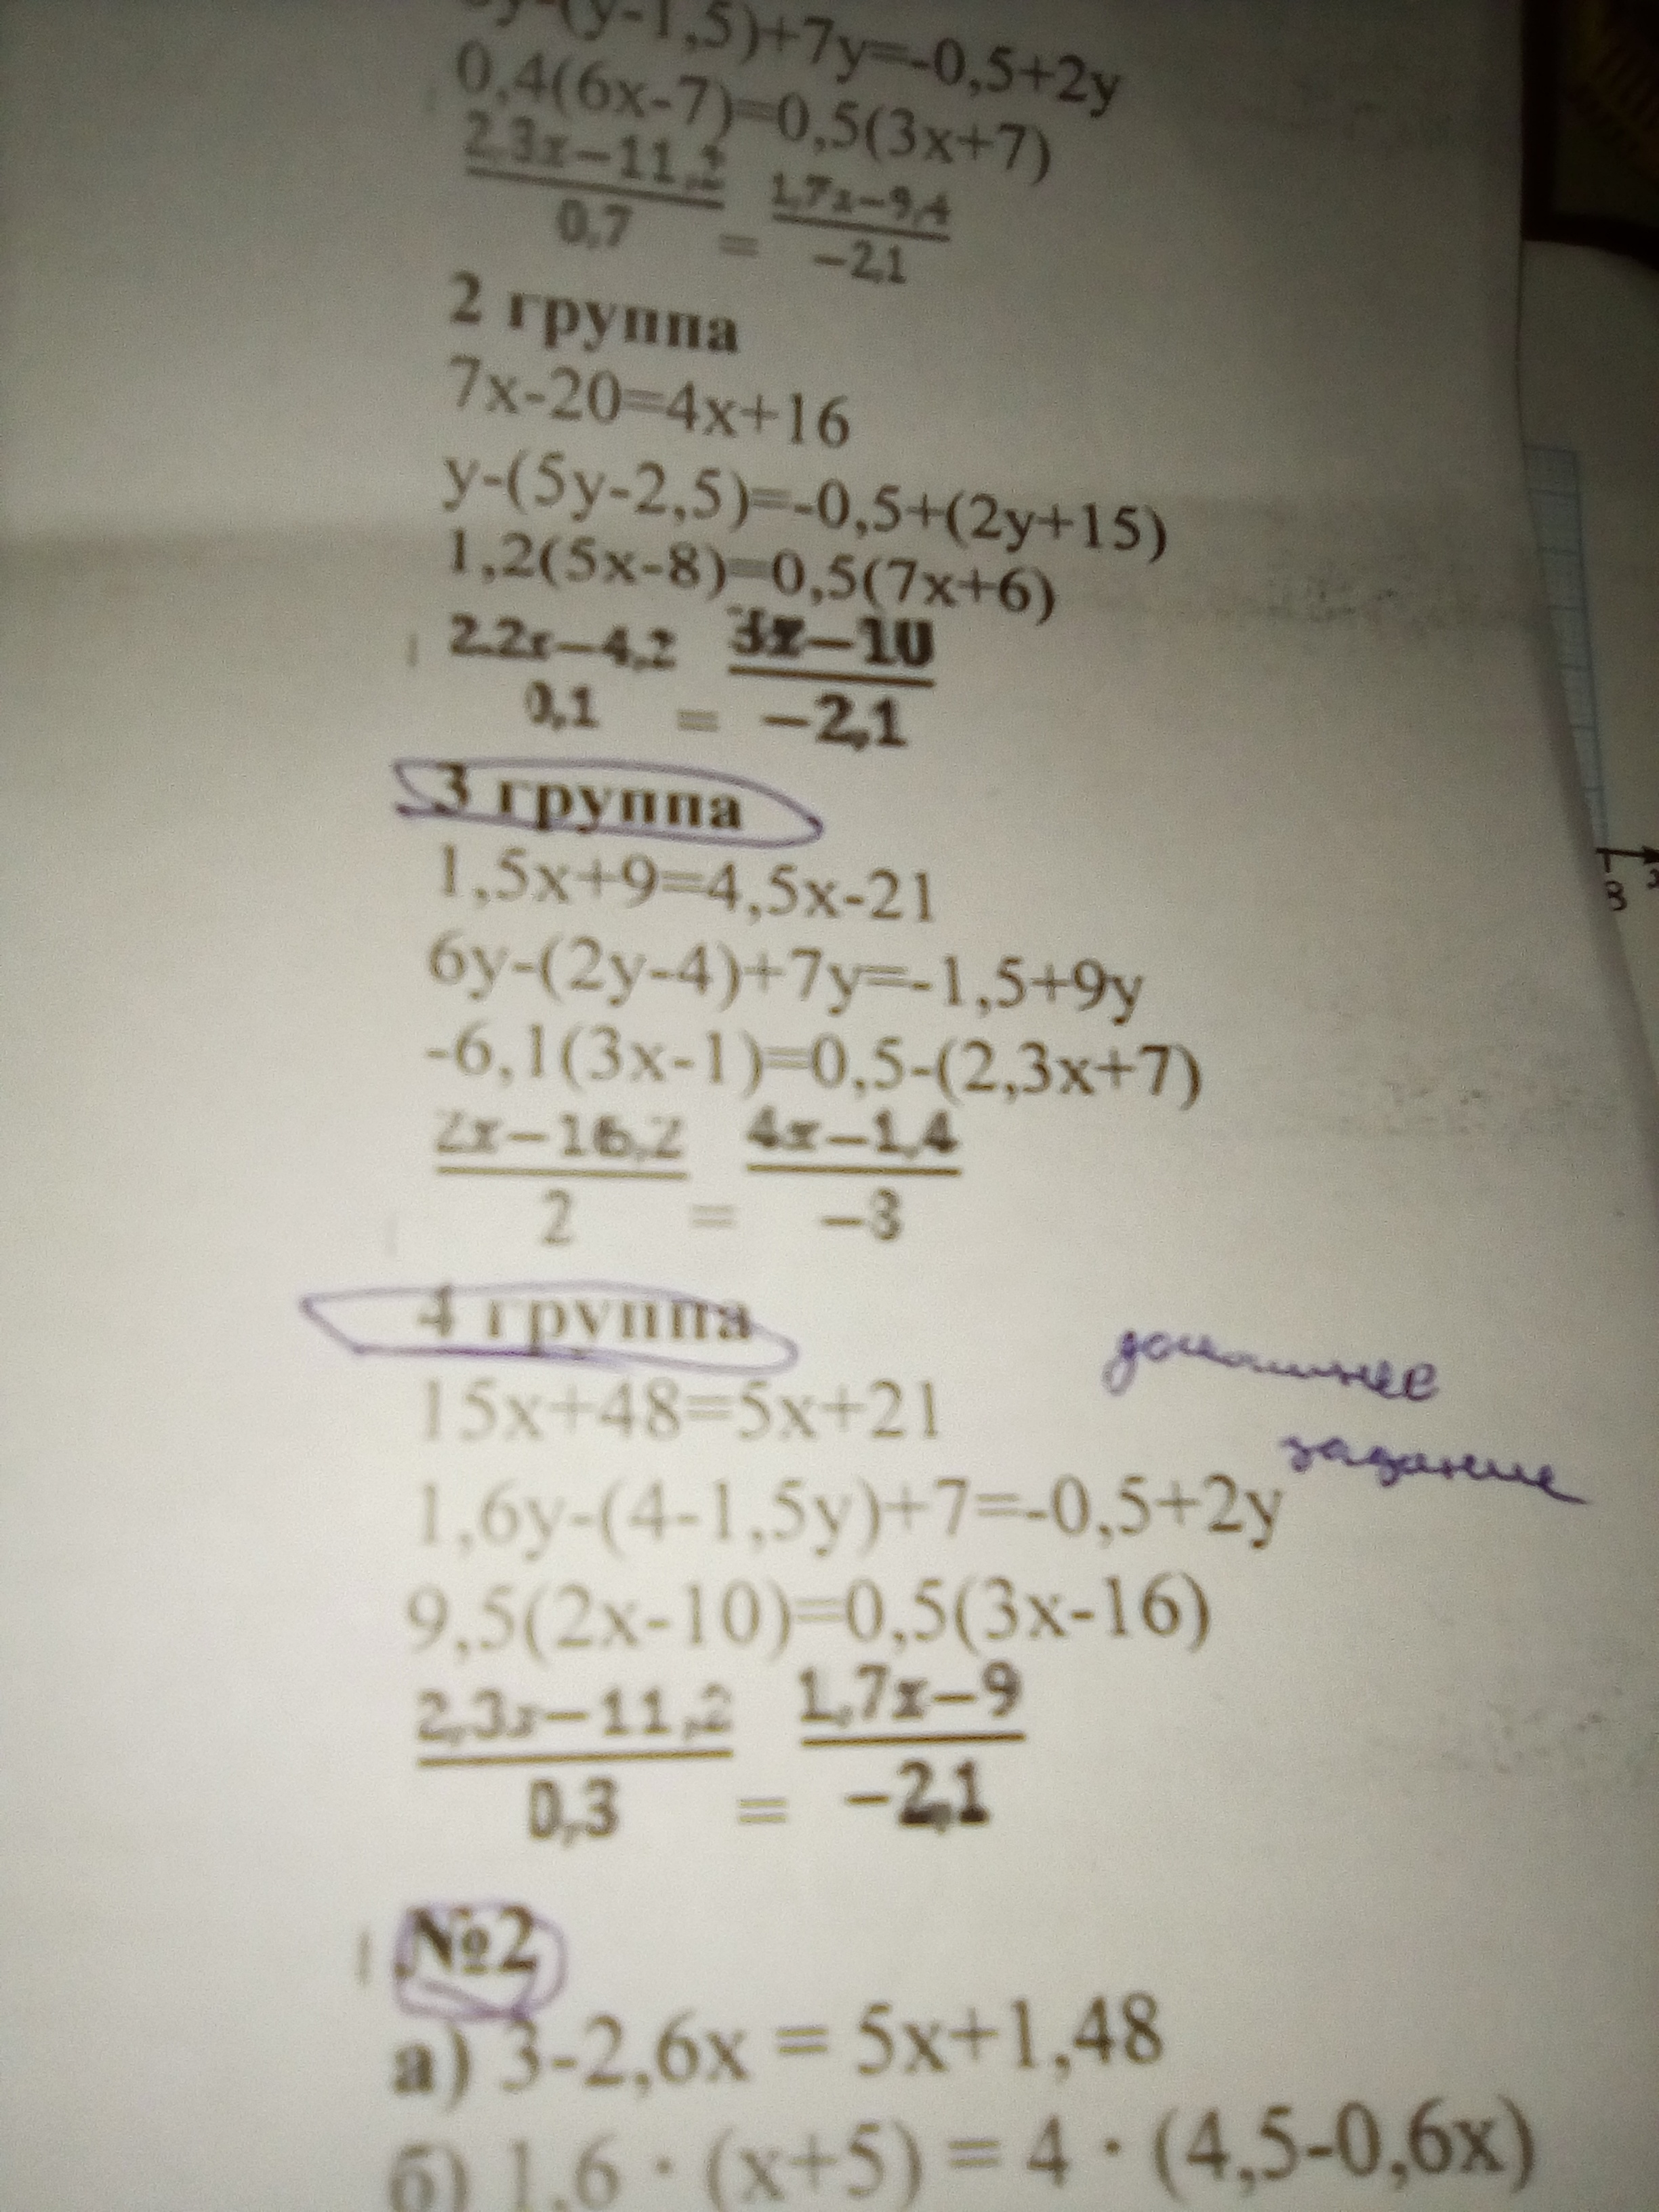 y-(y-1,5)+7y=-0,5+2y
0,4(6x-7)=0,5(3x+7)
2,3x−11,2 / 0,7 = 1,7x−9,4 / −2,1
2 группа
7x-20=4x+16
y-(5y-2,5)=-0,5+(2y+15)
1,2(5x-8)=0,5(7x+6)
2,2x−4,2 / 0,1 = 3x−10 / −2,1
3 группа
1,5x+9=4,5x-21
6y-(2y-4)+7y=-1,5+9y
-6,1(3x-1)=0,5-(2,3x+7)
2x−16,2 / 2 = 4x−1,4 / −3
4 группа
домашнее
15x+48=5x+21
задание
1,6y-(4-1,5y)+7=-0,5+2y
9,5(2x-10)=0,5(3x-16)
2,3x−11,2 / 0,3 = 1,7x−9 / −2,1
№2
а) 3-2,6x = 5x+1,48
б) 1,6 · (x+5) = 4 · (4,5-0,6x)